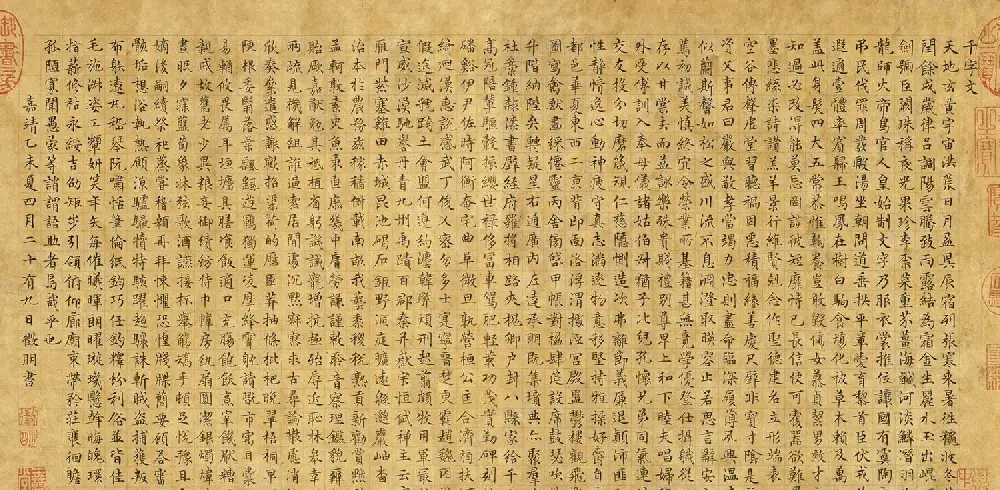 千字文
天地玄黃宇宙洪荒日月盈昃辰宿列張寒來暑往穐收冬
閏餘成歲律呂調陽雲騰致雨露結為霜金生麗水玉出崐
劍號巨闕珠稱夜光果珍李柰菜重芥薑海鹹河淡鱗潛羽
龍師火帝鳥官人皇始制文字乃服衣裳推位讓國有虞陶
弔民伐罪周發殷湯坐朝問道垂拱平章愛育黎首臣伏戎
遐邇壹體率賓歸王鳴鳳在樹白駒食場化被草木賴及萬
蓋此身髮四大五常恭惟鞠養豈敢毀傷女慕貞絜男效才
知過必改得能莫忘罔談彼短靡恃己長信使可覆器欲難
墨悲絲染詩讚羔羊景行維賢剋念作聖德建名立形端表
空谷傳聲虛堂習聽禍因惡積福緣善慶尺璧非寶寸陰是
資父事君曰嚴與敬孝當竭力忠則盡命臨深履薄夙興溫
似蘭斯馨如松之盛川流不息淵澄取暎容止若思言辭安
篤初誠美慎終宜令榮業所基籍甚無竟學優登仕攝職從
存以甘棠去而益詠樂殊貴賤禮別尊卑上和下睦夫唱婦
外受傅訓入奉母儀諸姑伯叔猶子比兒孔懷兄弟同氣連
交友投分切磨箴規仁慈隱惻造次弗離節義廉退顛沛匪
性靜情逸心動神疲守真志滿逐物意移堅持雅操好爵自
都邑華夏東西二京背邙面洛浮渭據涇宮殿盤鬱樓觀飛
圖寫禽獸畫綵僊靈丙舍傍啟甲帳對楹肆筵設席鼓瑟吹
升階納陛弁轉疑星右通廣內左達承明既集墳典亦聚羣
杜稾鍾隸漆書壁經府羅將相路夾槐卿戶封八縣家給千
高冠陪輦驅轂振纓世祿侈富車駕肥輕策功茂實勒碑刻
磻谿伊尹佐時阿衡奄宅曲阜微旦孰營桓公匡合濟弱扶
綺迴漢惠說感武丁俊乂密勿多士寔寧晉楚更霸趙魏困
假途滅虢踐土會盟何遵約法韓弊煩刑起翦頗牧用軍最
宣威沙漠馳譽丹青九州禹跡百郡秦并嶽宗恒岱禪主云
雁門紫塞雞田赤城昆池碣石鉅野洞庭曠遠緜邈巖岫杳
治本於農務茲稼穡俶載南畝我藝黍稷稅熟貢新勸賞黜
孟軻敦素史魚秉直庶幾中庸勞謙謹敕聆音察理鑑貌辨
貽厥嘉猷勉其祗植省躬譏誡寵增抗極殆辱近恥林皋幸
兩疏見機解組誰逼索居閒處沉默寂寥求古尋論散慮逍
欣奏累遣慼謝歡招渠荷的歷園莽抽條枇杷晚翠梧桐早
陳根委翳落葉飄颻遊鵾獨運凌摩絳霄耽讀翫市寓目囊
易輶攸畏屬耳垣牆具膳飡飯適口充腸飽飫烹宰飢厭糟
親戚故舊老少異糧妾御績紡侍巾帷房紈扇圓潔銀燭煒
晝眠夕寐藍筍象牀弦歌酒讌接杯舉觴矯手頓足悅豫且
嫡後嗣續祭祀蒸嘗稽顙再拜悚懼恐惶牋牒簡要顧答審
骸垢想浴執熱願涼驢騾犢特駭躍超驤誅斬賊盜捕獲叛
布射遼丸嵇琴阮嘯恬筆倫紙鈞巧任釣釋紛利俗並皆佳
毛施淑姿工顰妍笑年矢每催曦暉朗曜璇璣懸斡晦魄環
指薪修祜永綏吉劭矩步引領俯仰廊廟束帶矜莊徘徊瞻
孤陋寡聞愚蒙等誚謂語助者焉哉乎也
嘉靖乙未夏四月二十有九日徵明書